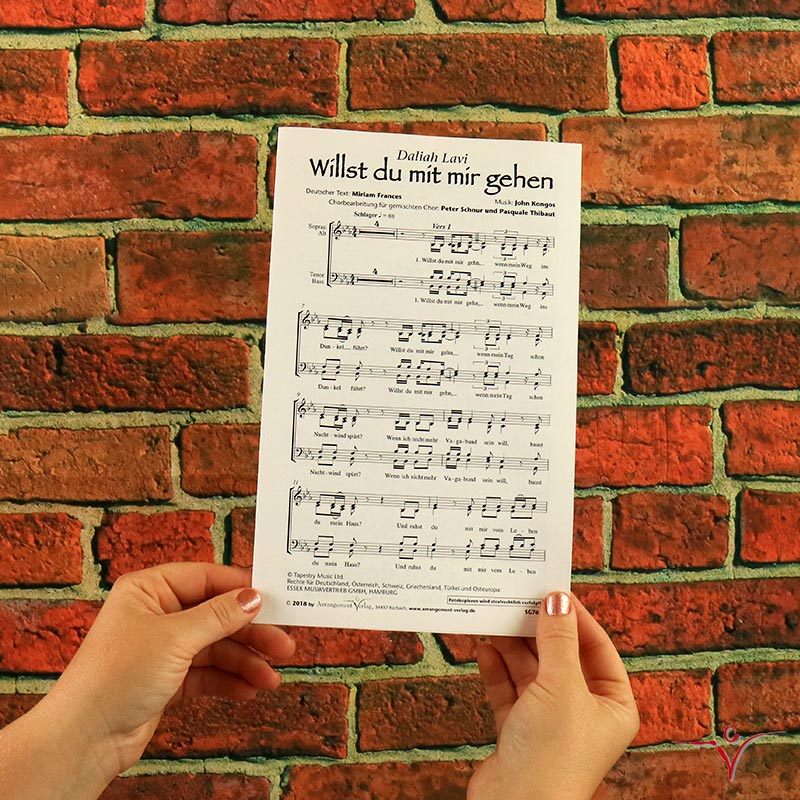 Daliah Lavi
Willst du mit mir gehen
Deutscher Text: Miriam Frances
Musik: John Kongos
Chorbearbeitung für gemischten Chor: Peter Schnur und Pasquale Thibaut
Schlager ♩ = 88
Vers 1
Sopran
Alt
4
3
1. Willst du mit mir gehn,... wenn mein Weg ins
Tenor
Bass
4
3
1. Willst du mit mir gehn,... wenn mein Weg ins
7
Dun - kel führt? Willst du mit mir gehn,... wenn mein Tag schon
Dun - kel führt? Willst du mit mir gehn,... wenn mein Tag schon
9
Nacht - wind spürt? Wenn ich nicht mehr Va - ga - bund sein will, baust
Nacht - wind spürt? Wenn ich nicht mehr Va - ga - bund sein will, baust
11
du mein Haus? Und ruhst du mit mir vom Le - ben
du mein Haus? Und ruhst du mit mir vom Le - ben
© Tapestry Music Ltd.
Rechte für Deutschland, Österreich, Schweiz, Griechenland, Türkei und Osteuropa:
ESSEX MUSIKVERTRIEB GMBH, HAMBURG
Fotokopieren wird strafrechtlich verfolgt!
© 2018 by Arrangement Verlag, 34497 Korbach, www.arrangement-verlag.de
SG76